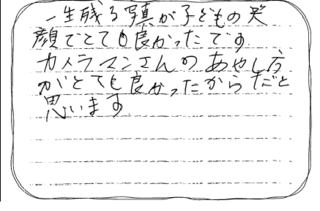 一生残る写真が子どもの笑
顔でとても良かったです
カメラマンさんのあやし方
がとても良かったからだと
思います